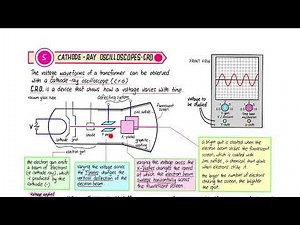 5 CATHODE-RAY OSCILLOSCOPES-CRO
The voltage waveforms of a transformer can be observed
with a cathode-ray oscilloscope (c.r.o)
C.R.O. is a device that shows how a voltage varies with time.
FRONT VIEW
vacuum glass tube
deflecting
fluorescent
screen
V
electron gun
y-plates
x-plates
graphite
coating
voltage to
be studied
the electron gun emits
a beam of electrons
(a cathode ray), which
is produced by the
cathode (-)
varying the voltage across the
Y-plates changes the
vertical deflection of the
electron beam
varying the voltage across the
X-plates changes the speed
at which the electron beam
sweeps horizontally across
the fluorescent screen
a bright spot is created when the
electron beam strikes the fluorescent
screen, which is coated with
zinc sulfide, a chemical that glows
when electrons strike it
the larger the number of electrons
striking the screen, the brighter
the spot